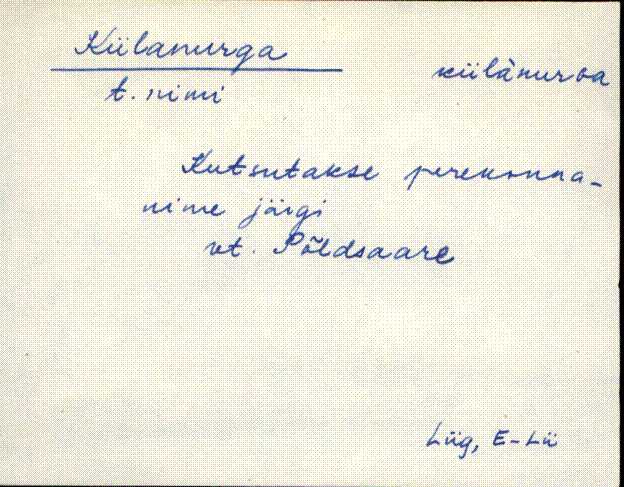 Külanurga
külànurGa
t. nimi
Kutsutakse perekonna-
nime järgi
vt. Põldsaare
Lüg, E-Lü